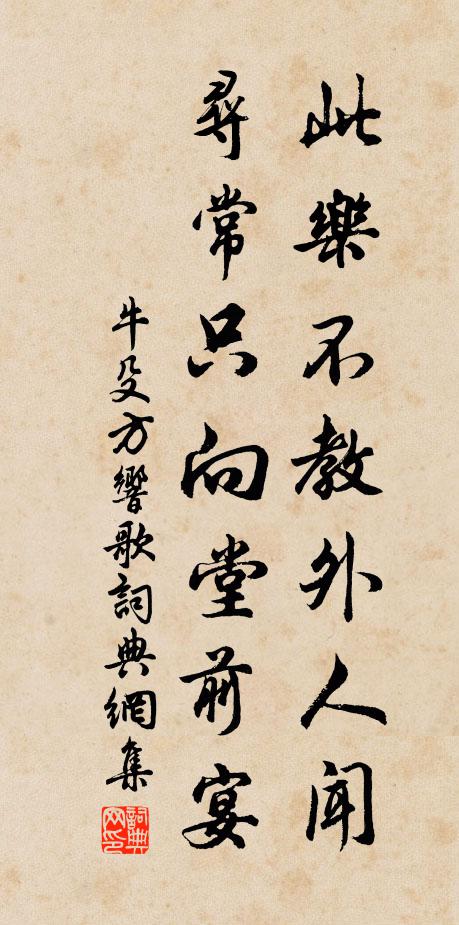 此樂不教外人聞
尋常只向堂前宴
牛殳方響歌詞典網集
詞典網印